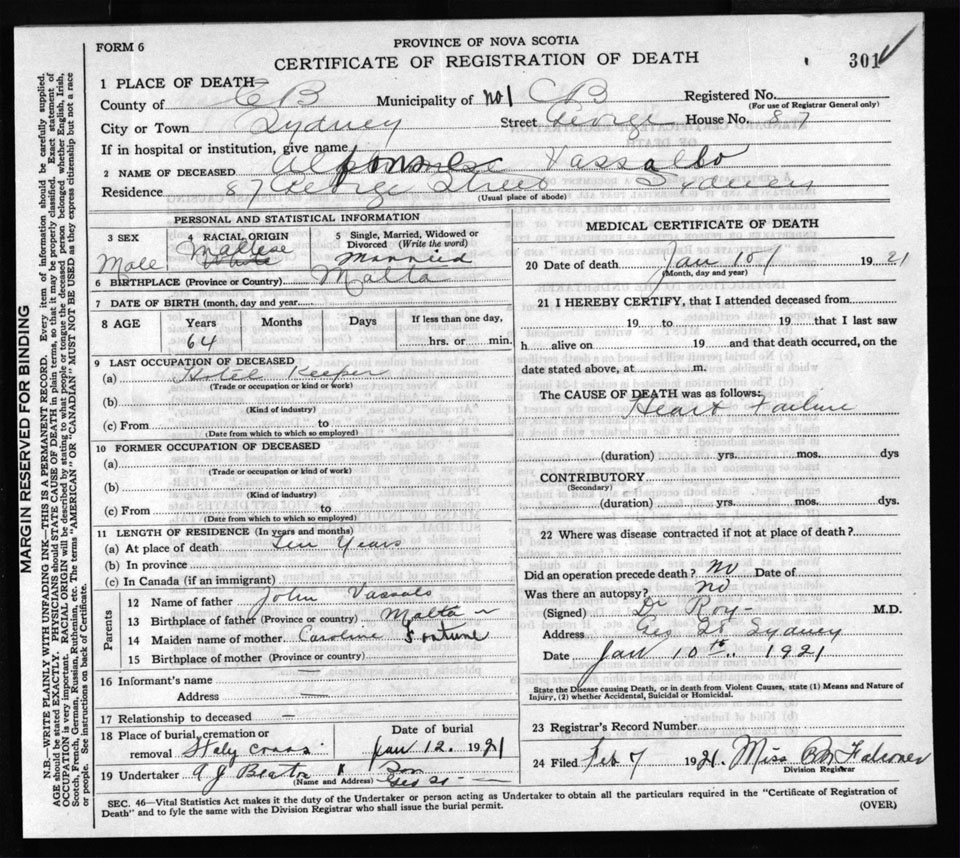 FORM 6
PROVINCE OF NOVA SCOTIA
CERTIFICATE OF REGISTRATION OF DEATH
301
1 PLACE OF DEATH
County of C B Municipality of No 1 C B Registered No.
(For use of Registrar General only)
City or Town Sydney Street George House No. 87
If in hospital or institution, give name
2 NAME OF DECEASED Vassallo
Residence 87 George Street Sydney
(Usual place of abode)
PERSONAL AND STATISTICAL INFORMATION
3 SEX
Male
4 RACIAL ORIGIN
Maltese
White
5 Single, Married, Widowed or Divorced (Write the word)
Married
6 BIRTHPLACE (Province or Country) Malta
7 DATE OF BIRTH (month, day and year)
8 AGE Years Months Days If less than one day,
64 hrs. or min.
9 LAST OCCUPATION OF DECEASED
(a) Hotel Keeper
(Trade or occupation or kind of work)
(b)
(Kind of industry)
(c) From to
(Date from which to which so employed)
10 FORMER OCCUPATION OF DECEASED
(a)
(Trade or occupation or kind of work)
(b)
(Kind of industry)
(c) From to
(Date from which to which so employed)
11 LENGTH OF RESIDENCE (In years and months)
(a) At place of death Ten Years
(b) In province
(c) In Canada (if an immigrant)
Parents
12 Name of father John Vassalo
13 Birthplace of father (Province or country) Malta
14 Maiden name of mother Caroline Fortune
15 Birthplace of mother (Province or country)
16 Informant's name —
Address —
17 Relationship to deceased —
18 Place of burial, cremation or removal Holy Cross
Date of burial
Jan 12 1921
19 Undertaker A J Beaton & Son
(Name and Address) Geo St
MEDICAL CERTIFICATE OF DEATH
20 Date of death Jan 10 1921
(Month, day and year)
21 I HEREBY CERTIFY, that I attended deceased from
19 to 19 that I last saw
h alive on 19 and that death occurred, on the
date stated above, at m.
The CAUSE OF DEATH was as follows:
Heart Failure
(duration) yrs. mos. dys
CONTRIBUTORY
(Secondary)
(duration) yrs. mos. dys.
22 Where was disease contracted if not at place of death?
Did an operation precede death? No Date of
Was there an autopsy? No
(Signed) Dr Roy M.D.
Address Geo St Sydney
Date Jan 10th 1921
State the Disease causing Death, or in death from Violent Causes, state (1) Means and Nature of
Injury, (2) whether Accidental, Suicidal or Homicidal.
23 Registrar's Record Number
24 Filed Feb 7 1921. Miss Falconer
Division Registrar
SEC. 46—Vital Statistics Act makes it the duty of the Undertaker or person acting as Undertaker to obtain all the particulars required in the "Certificate of Registration of
Death" and to fyle the same with the Division Registrar who shall issue the burial permit.
(OVER)
MARGIN RESERVED FOR BINDING
N.B.—WRITE PLAINLY WITH UNFADING INK—THIS IS A PERMANENT RECORD. Every item of information should be carefully supplied.
AGE should be stated EXACTLY. PHYSICIANS should STATE CAUSE OF DEATH in plain terms, so that it may be properly classified. Exact statement of
OCCUPATION is very important. RACIAL ORIGIN will be described by stating to what people or tongue the deceased person belonged whether English, Irish,
Scotch, French, German, Russian, Ruthenian, etc. The terms "AMERICAN" OR "CANADIAN" MUST NOT BE USED as they express citizenship but not a race
or people. See instructions on back of Certificate.